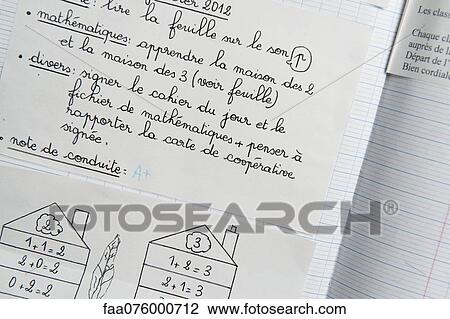 2012
: lire la feuille sur le son p
• mathématiques: apprendre la maison des 2
et la maison des 3 (voir feuille)
• divers: signer le cahier du jour et le
fichier de mathématiques + penser à
rapporter la carte de coopérative
signée.
• note de conduite: A+
2
1+1=2
2+0=2
0+2=2
3
1+2=3
2+1=3
Les class
Chaque cl
auprès de la
Départ de l'
Bien cordiale
© Fotosearch®
faa076000712 www.fotosearch.com